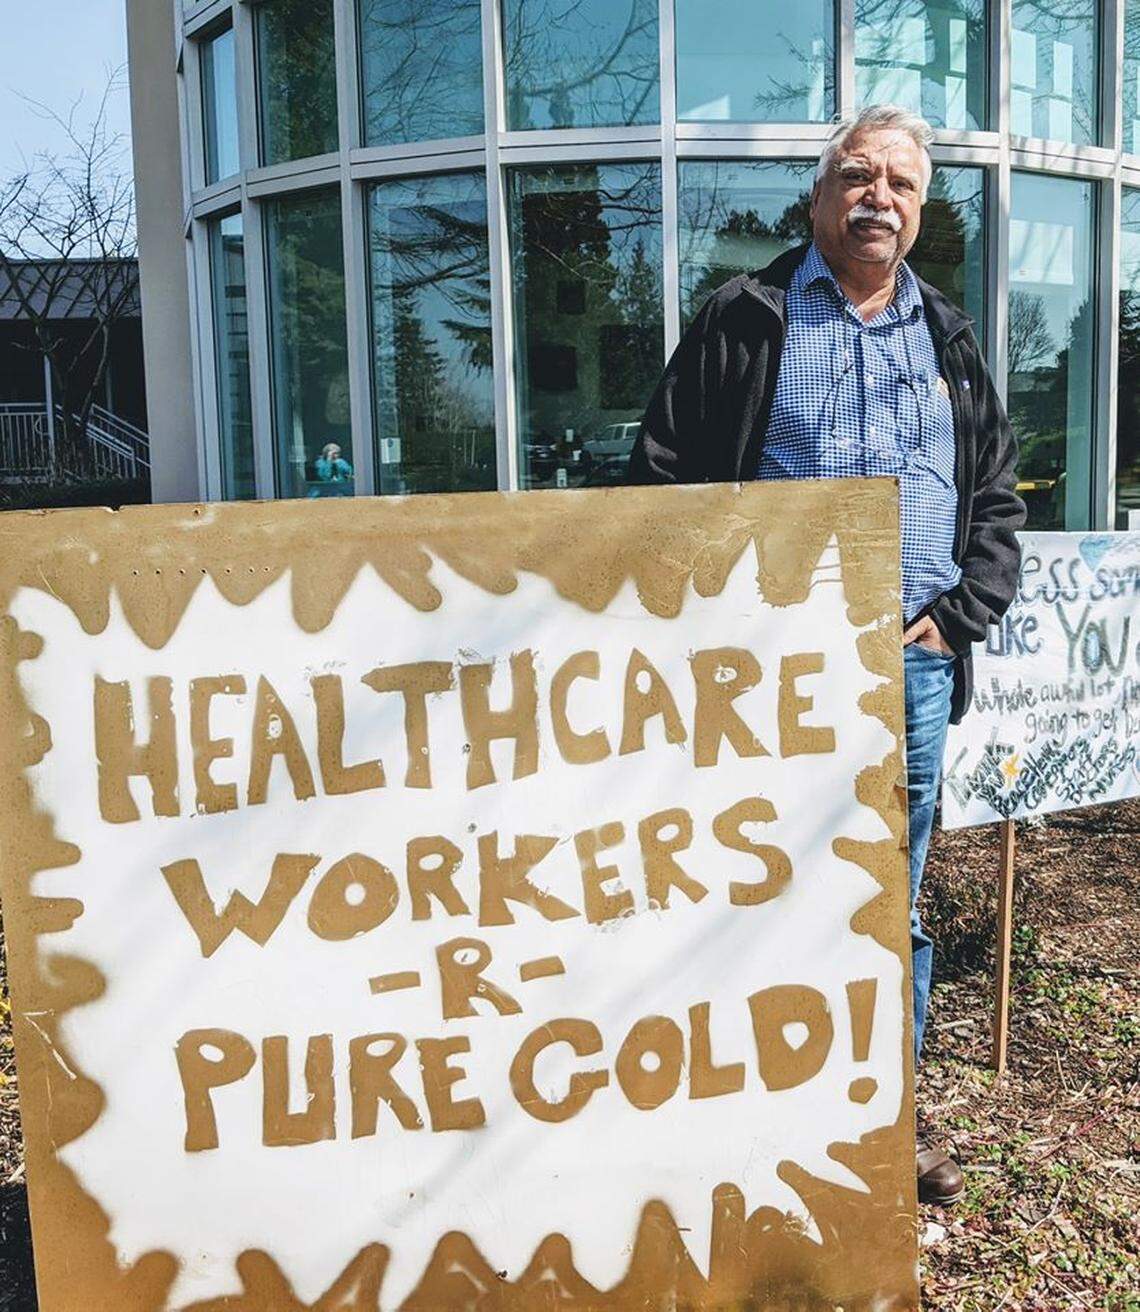 HEALTHCARE
WORKERS
-R-
PURE GOLD!
like YOU
whole awful lot
going to get